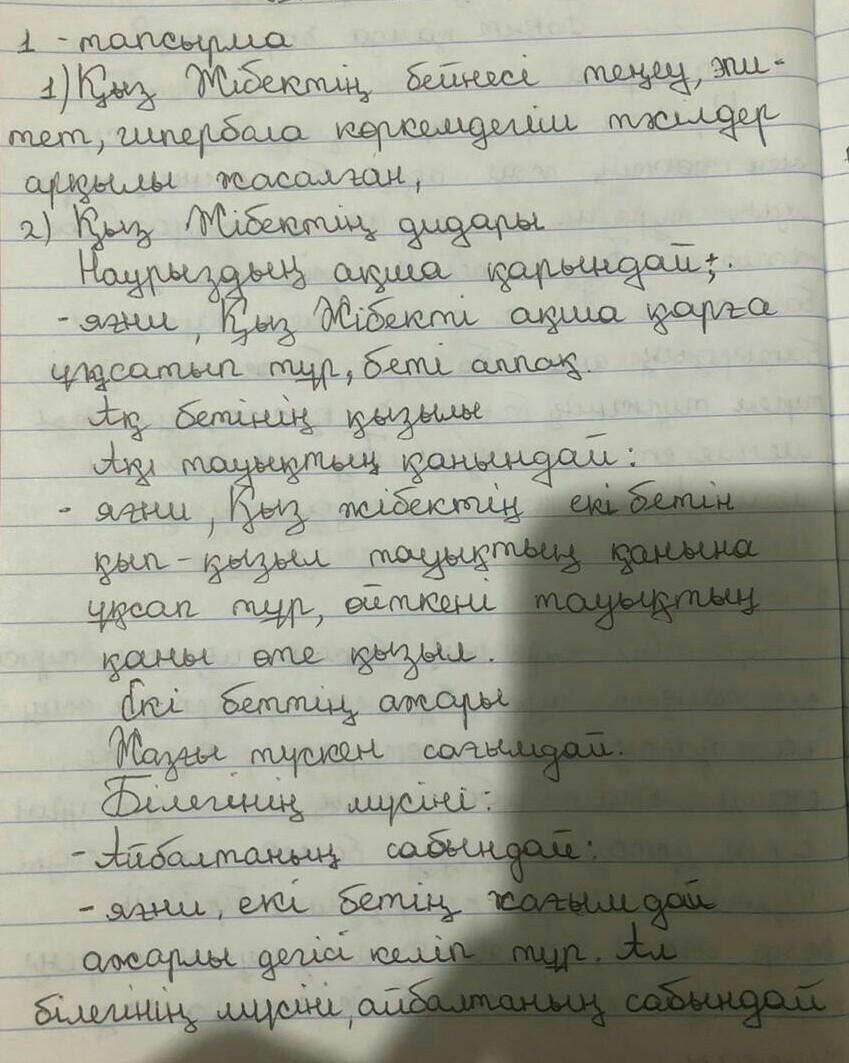 1 - тапсырма
1) Қыз Жібектің бейнесі теңеу, эпи-
тет, гипербола көркемдегіш тәсілдер
арқылы жасалған,
2) Қыз Жібектің дидары
Наурыздың ақша қарындай;
- яғни, Қыз Жібекті ақша қарға
ұқсатып тұр, беті аппақ.
Ақ бетінің қызылы
Ақ тауықтың қанындай:
- яғни, Қыз жібектің екі бетін
қып-қызыл тауықтың қанына
ұқсап тұр, өйткені тауықтың
қаны өте қызыл.
Екі беттің ажары
Жазғы түскен сағымдай.
Білегінің мүсіні:
- Айбалтаның сабындай:
- яғни, екі бетің жағымдай
ажарлы дегісі келіп тұр. Ал
білегінің мүсіні, айбалтаның сабындай